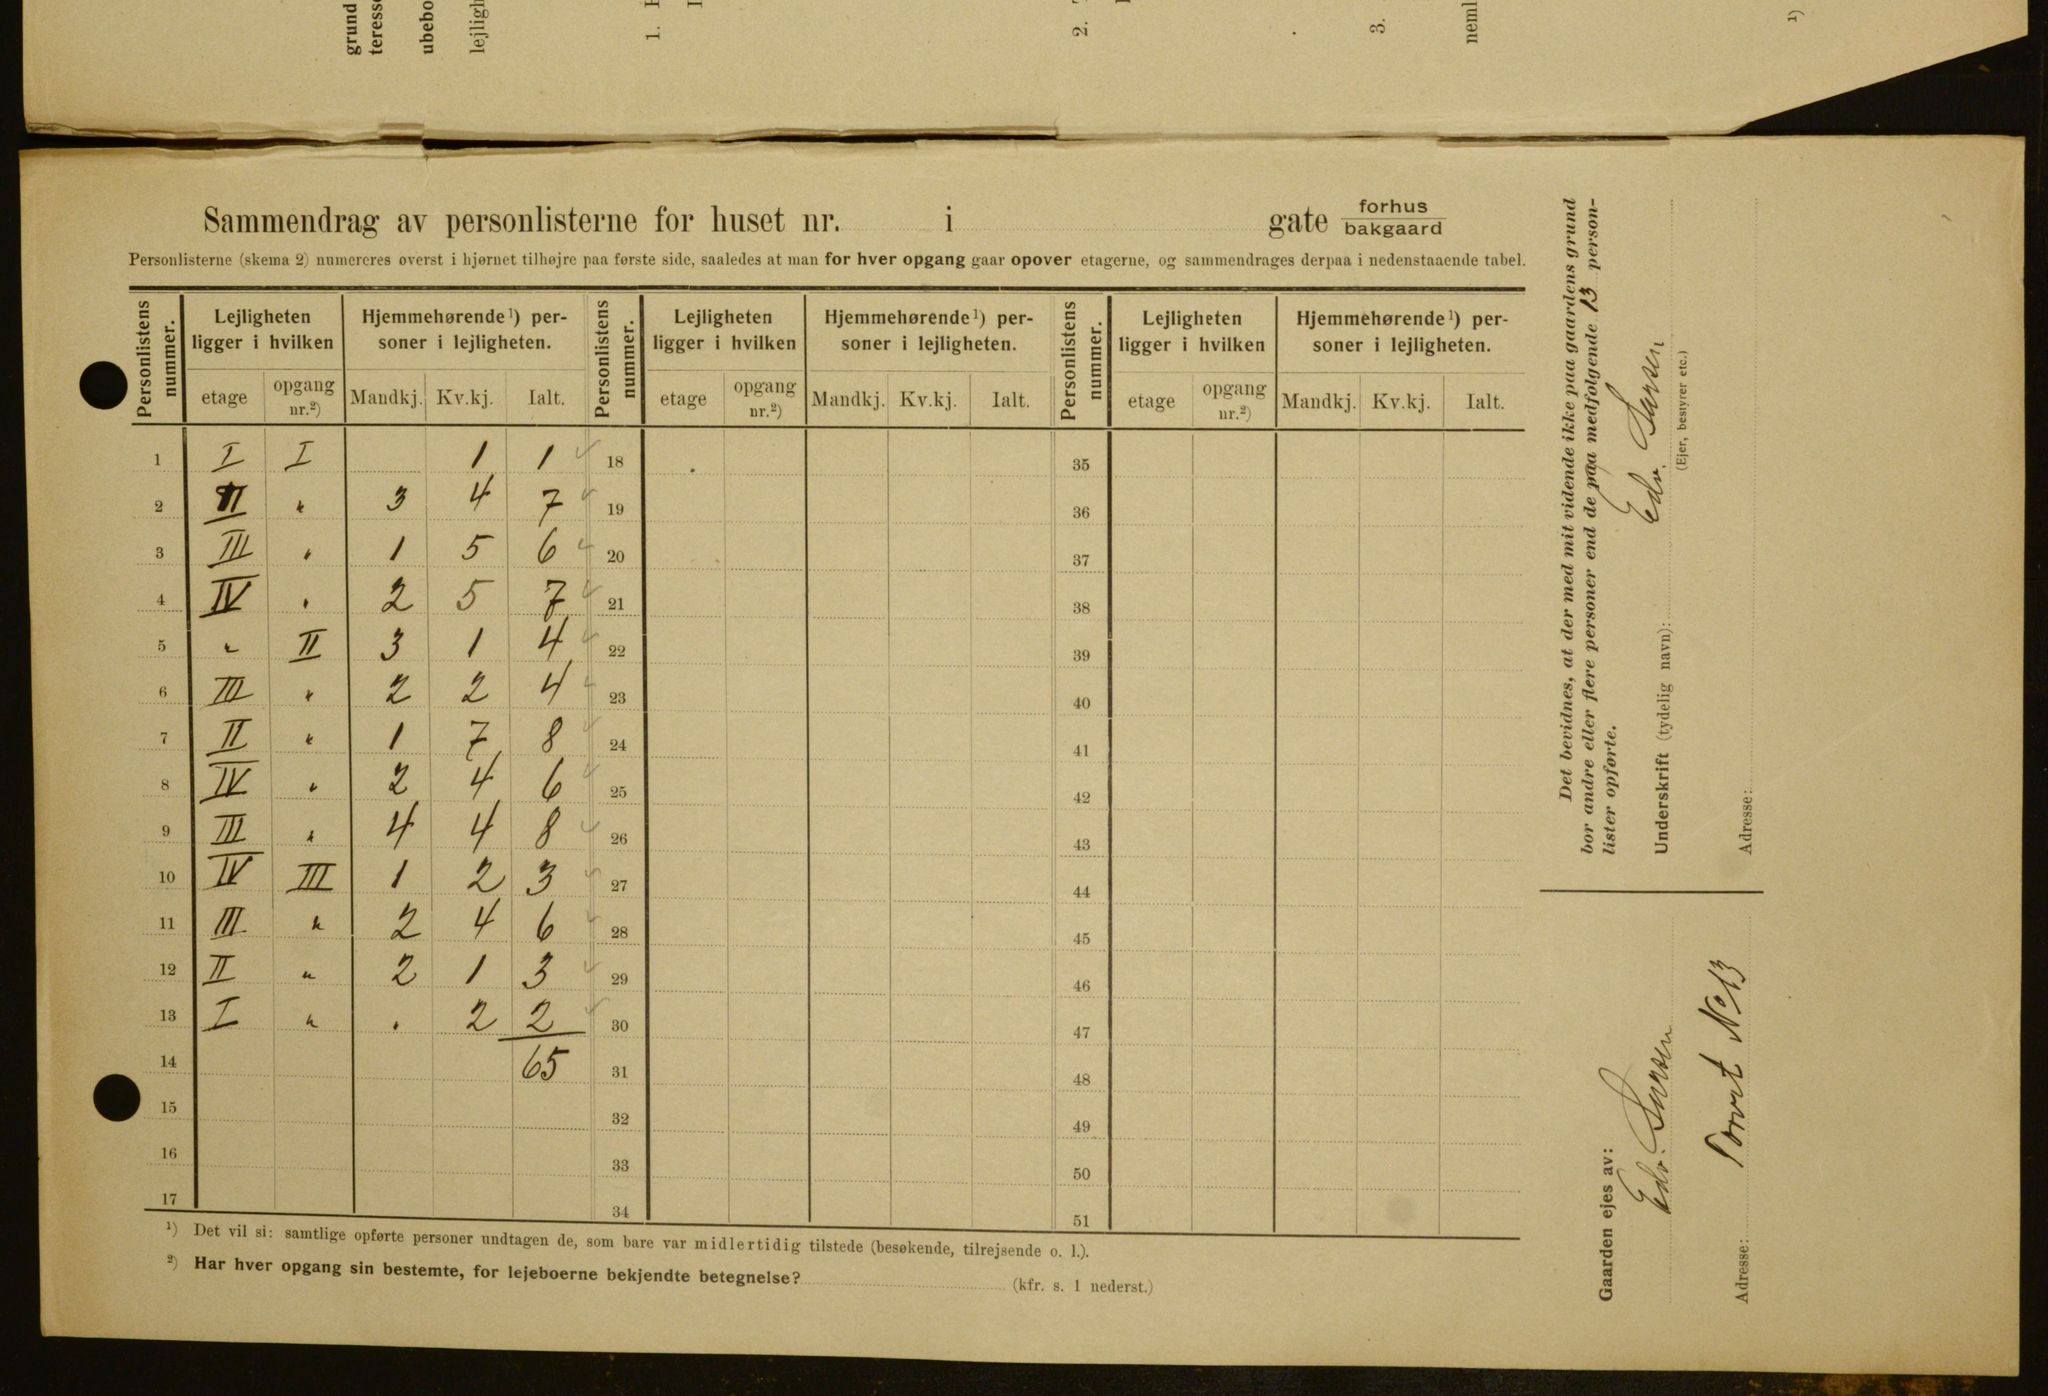 grund
teresse
ubebo
lejligh
1.
2.
3.
neml
¹)
Sammendrag av personlisterne for huset nr. i gate forhus
bakgaard
Personlisterne (skema 2) numereres øverst i hjørnet tilhøjre paa første side, saaledes at man for hver opgang gaar opover etagerne, og sammendrages derpaa i nedenstaaende tabel.
Personlistens nummer. Lejligheten ligger i hvilken Hjemmehørende¹) personer i lejligheten. Personlistens nummer. Lejligheten ligger i hvilken Hjemmehørende¹) personer i lejligheten. Personlistens nummer. Lejligheten ligger i hvilken Hjemmehørende¹) personer i lejligheten.
etage opgang nr.²) Mandkj. Kv.kj. Ialt. etage opgang nr.²) Mandkj. Kv.kj. Ialt. etage opgang nr.²) Mandkj. Kv.kj. Ialt.
1 I I 1 1 18 35
2 II " 3 4 7 19 36
3 III " 1 5 6 20 37
4 IV " 2 5 7 21 38
5 " II 3 1 4 22 39
6 III " 2 2 4 23 40
7 II " 1 7 8 24 41
8 IV " 2 4 6 25 42
9 III " 4 4 8 26 43
10 IV III 1 2 3 27 44
11 III " 2 4 6 28 45
12 II " 2 1 3 29 46
13 I " . 2 2 30 47
14 65 31 48
15 32 49
16 33 50
17 34 51
¹) Det vil si: samtlige opførte personer undtagen de, som bare var midlertidig tilstede (besøkende, tilrejsende o. l.).
²) Har hver opgang sin bestemte, for lejeboerne bekjendte betegnelse? (kfr. s. 1 nederst.)
Det bevidnes, at der med mit vidende ikke paa gaardens grund
bor andre eller flere personer end de paa medfølgende 13 person-
lister opførte.
Underskrift (tydelig navn): Edv. Larsen
(Ejer, bestyrer etc.)
Adresse:
Gaarden ejes av:
Edv. Larsen
Adresse: Torvet No 13